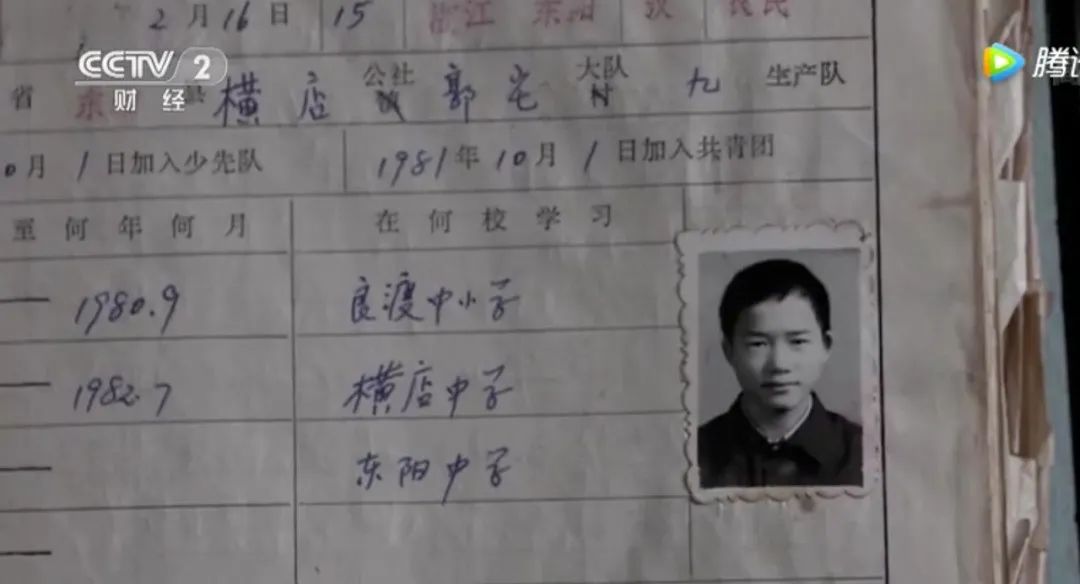 2月16日 15 浙江 东阳 汉 农民
CCTV 2
财经
腾讯
省 东 县 横店 公社镇 郭宅 大队村 九 生产队
0月1日加入少先队 1981年10月1日加入共青团
至何年何月 在何校学习
— 1980.9 良渡中小学
— 1982.7 横店中学
— 东阳中学
—